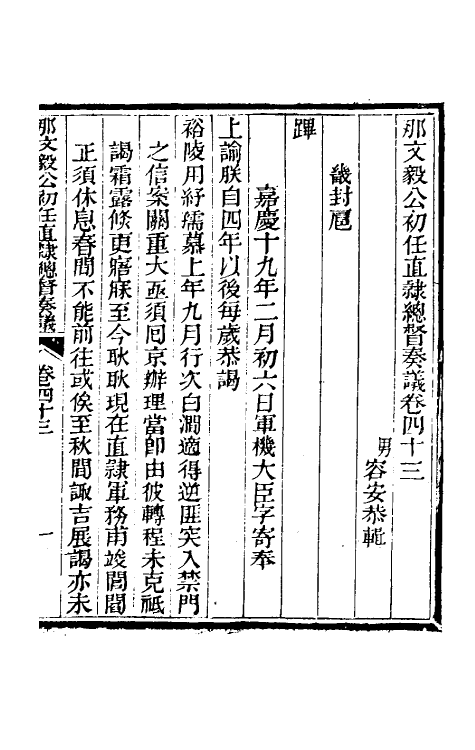 那文毅公初任直隸總督奏議卷四十三
男容安恭輯
畿封扈
蹕
嘉慶十九年二月初六日軍機大臣字寄奉
上諭朕自四年以後每歲恭謁
裕陵用紓孺慕上年九月行次白澗適得逆匪突入禁門
之信案關重大亟須囘京辦理當即由彼轉程未克祗
謁霜露倐更寤寐至今耿耿現在直隸軍務甫竣閭閻
正須休息春間不能前往或俟至秋間諏吉展謁亦未
那文毅公初任直隸總督奏議 卷四十三 一